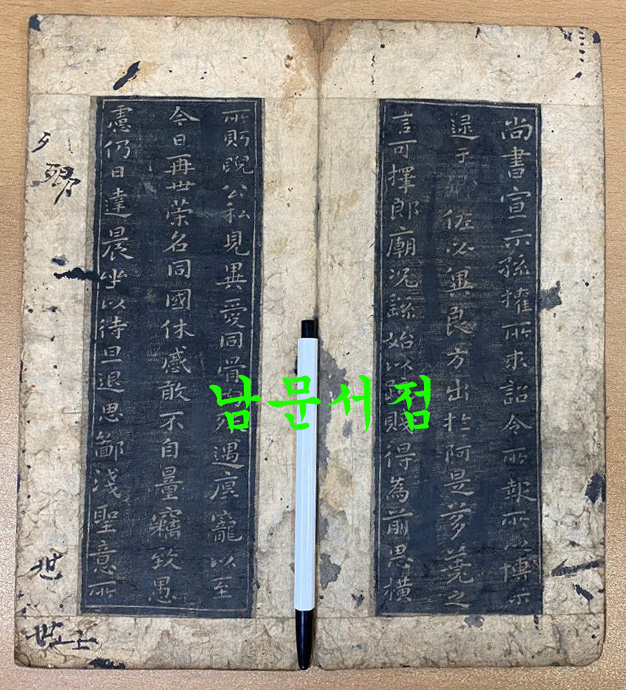 尚書宣示孫權所求詔令所報所博示
逮于佐必冀良方出於阿是芻蕘之
言可擇郎廟況繇始以疏賤得為前恩橫
所眄睨公私見異愛同骨遇厚寵以至
今日再世荣名同國休慼敢不自量竊致愚
慮仍日達晨坐以待旦退思鄙淺聖意所
남문서점
世
世上